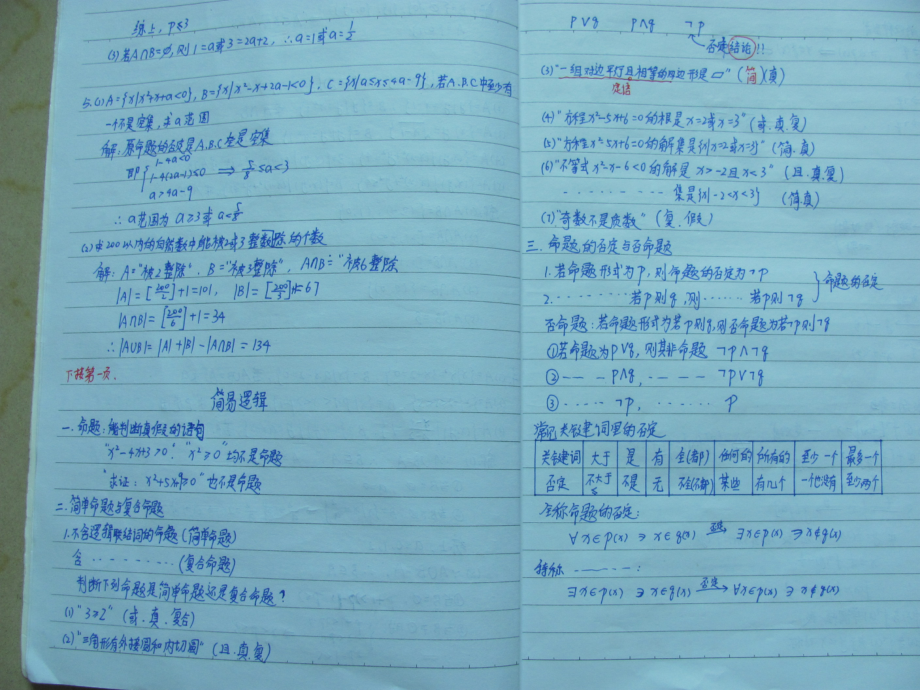 综上，p≤3
(3) 若A∩B=∅，则 1=a或3=2a+2，∴a=1或a=1/2
5.(1) A={x|x²+x+a<0}，B={x|x²-x+2a-1<0}，C={x|a≤x≤4a-9}，若A.B.C中至少有
一个不是空集，求a范围
解：原命题的否定是A.B.C全是空集
即{1-4a<0
1-4(2a-1)≤0 ⇒ 5/8≤a<3
a>4a-9
∴a范围为 a≥3或a<5/8
(2) 求200以内的自然数中能被2或3整除的个数
解：A="被2整除"，B="被3整除"，A∩B="被6整除
|A|=[200/2]+1=101，|B|=[200/3]+1=67
|A∩B|=[200/6]+1=34
∴|A∪B|=|A|+|B|-|A∩B|=134
下接第一页.
简易逻辑
一.命题：能判断真假的语句
"x²-4x+3>0" "x²≥0" 均不是命题
"求证：x²+5x≥0"也不是命题
二.简单命题与复合命题
1.不含逻辑联结词的命题(简单命题)
含………(复合命题)
判断下列命题是简单命题还是复合命题？
(1)"3≥2" (或.真.复合)
(2)"三角形有外接圆和内切圆" (且.真.复)
p∨q p∧q ¬p
否定结论!!
(3)"一组对边平行且相等的四边形是▱" (简)(真)
定语
(4)"方程x²-5x+6=0的根是x=2或x=3" (或.真.复)
(5)"方程x²-5x+6=0的解集是{x|x=2或x=3}" (简.真)
(6)"不等式x²-x-6<0的解是x>-2且x<3" (且.真.复)
………集是{x|-2<x<3} (简真)
(7)"奇数不是质数" (复.假)
三.命题的否定与否命题
1.若命题形式为p，则命题的否定为¬p
2.……若p则q，则……若p则¬q }命题的否定
否命题：若命题形式为若p则q，则否命题为若¬p则¬q
①若命题为p∨q，则其非命题 ¬p∧¬q
②——p∧q，———¬p∨¬q
③……¬p，……p
常记关键词里的否定
关键词 大于 是 有 全(都) 任何的 所有的 至少一个 最多一个
否定 不大于≤ 不是 无 不全(不都) 某些 有几个 一个也没有 至少两个
全称命题的否定：
∀x∈p(x) ∋ x∈q(x) 否定→ ∃x∈p(x) ∋ x∉q(x)
特称———：
∃x∈p(x) ∋ x∈q(x) 否定→ ∀x∈p(x) ∋ x∉q(x)